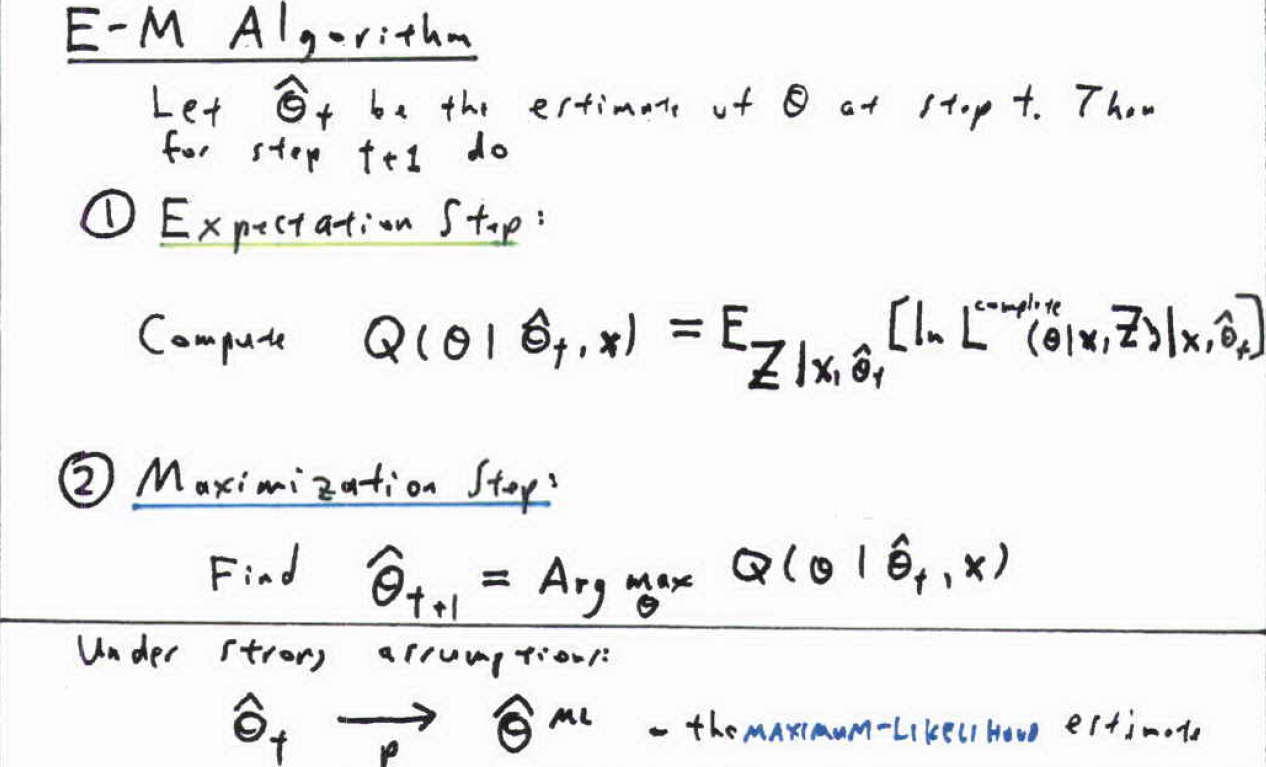 E-M Algorithm
Let θ̂_t be the estimate of θ at step t. Then
for step t+1 do
① Expectation Step:
Compute Q(θ | θ̂_t, x) = E_{Z|x, θ̂_t} [ln L^{complete}(θ|x, Z)|x, θ̂_t]
② Maximization Step:
Find θ̂_{t+1} = Arg max_θ Q(θ | θ̂_t, x)
Under strong assumptions:
θ̂_t →_p θ̂^{ML} - the MAXIMUM-LIKELIHOOD estimate